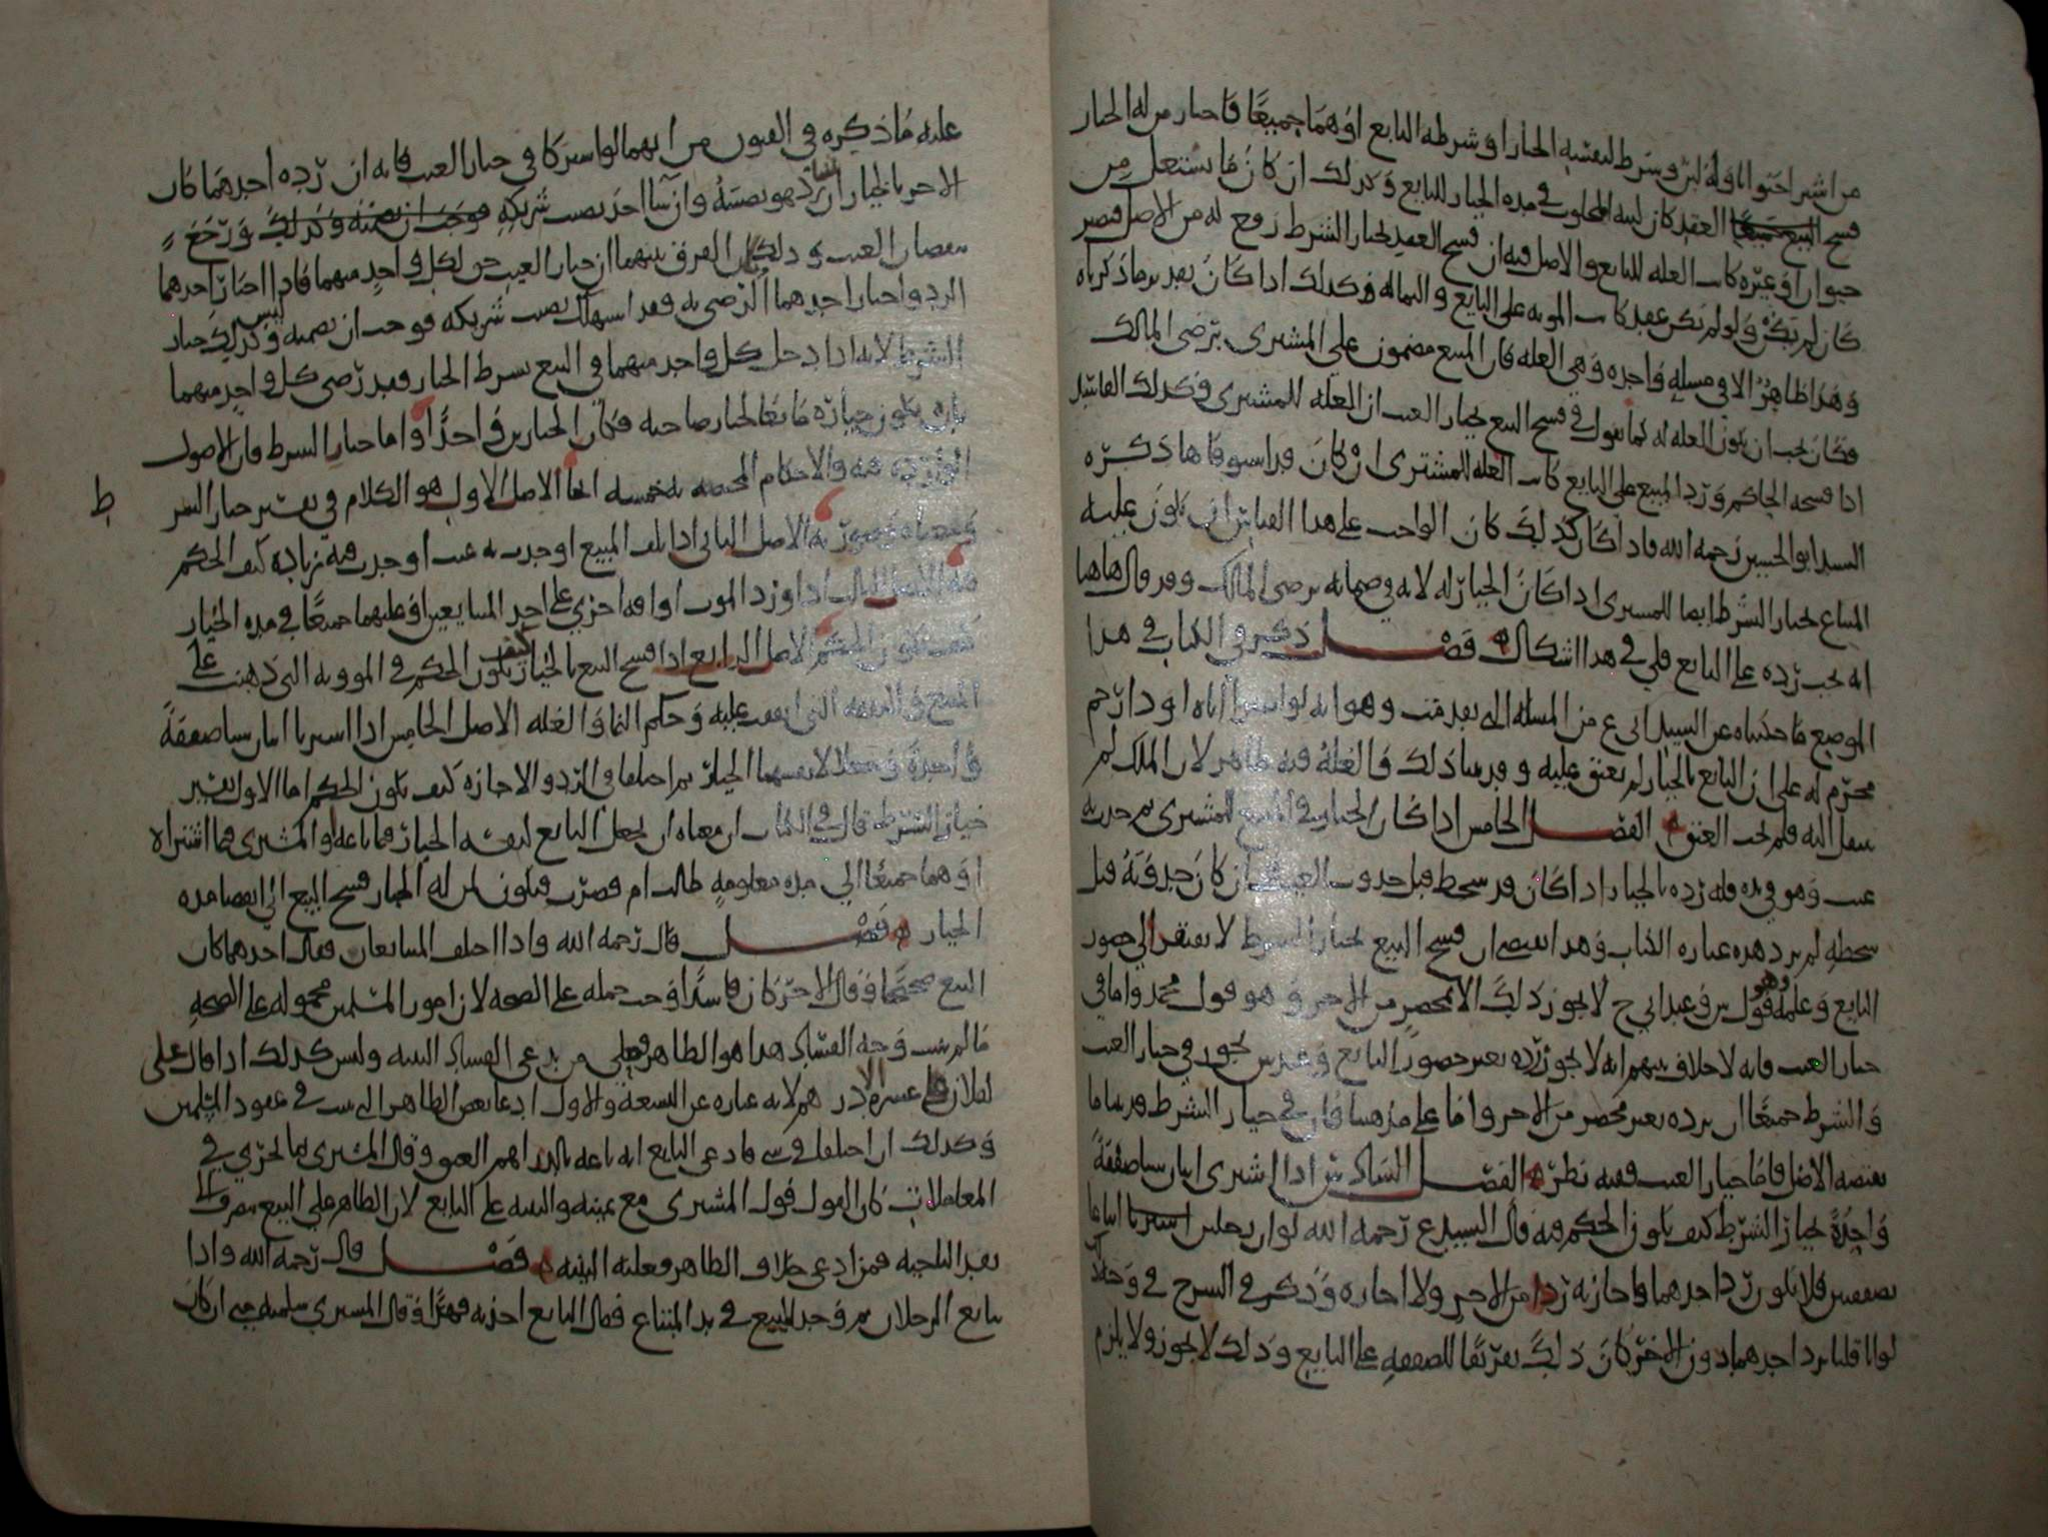 من اشترا حيوانا وله لبن وشرط لنفسه الخيار او شرطه البايع او هما جميعًا فاختار من له الخيار
فسخ العقد كان لبنه المحلوب في مدة الخيار للبايع وكذلك ان كان ما يستغل من
حيوان او غيره كانت الغله للبايع والاصل فيه ان فسخ العقد بخيار الشرط رفع له من الاصل فيصير
كان لم يكن ولو لم يكن عقد كانت المونه على البايع والنما له وكذلك اذا كان بعد ما ذكرناه
وهذا ظاهر الا في مسله واحده وهي الغله فان المبيع مضمون على المشتري برضى المالك
فكان يجب ان يكون الغله له كما نقول في فسخ البيع بخيار العيب ان الغله للمشتري وكذلك الفاسد
اذا فسخه الحاكم ورد المبيع على البايع كانت الغله للمشتري ان كان قد استوفاها ذكره
السيد ابو الحسين رحمه الله فاذا كان كذلك كان الواجب على هذا القياس ان يكون غلة
المتاع بخيار الشرط ايضا للمشتري اذا كان الخيار له لانه في ضمانه برضى المالك وقد قال هاهنا
انه يجب رده على البايع قلي في هذا اشكال فصل ذكر في الكتاب في هذا
الموضع ما حكيناه عن السيد ابي ع من المسله التي تقدمت وهو انه لو اشترا اباه او ذا رحم
محرم له على ان البايع بالخيار لم يعتق عليه وقد بينا ذلك فالعله فيه ظاهر لان الملك لم
ينتقل اليه فلم يجب العتق الفصل الخامس اذا كان الخيار في المبيع للمشتري ثم حدث به
عيب وهو في يده فله رده بالخيار اذا كان قد سخط قبل حدوث العيب وان كان حدوثه قبل
سخطه لم يرد هذه عبارة الكتاب وهذا يقتضي ان فسخ البيع بخيار الشرط لا يفتقر الى حضور
البايع وعلمه وهو قول س وعند ابي ح لا يجوز ذلك الا بمحضر من الاخر وهو قول محمد واما في
خيار العيب فانه لا خلاف بينهم انه لا يجوز رده بغير حضور البايع وعند س يجوز في خيار العيب
والشرط جميعًا ان يرده بغير محضر من الاخر واما على مذهبنا فان في خيار الشرط قد بينا ما
يقتضيه الاصل فاما خيار العيب ففيه نظر الفصل السادس اذا اشترى اثنان شيا صفقةً
واحدةً بخيار الشرط كيف يكون الحكم فيه قال السيد ع رحمه الله لو ان رجلين ابتاعا
بصفقتين فلا يكون رد احدهما واجازته ردا من الاخر ولا اجازه وذكر في الشرح في وجه ذلك
لو انا قلنا يرد احدهما دون الاخر كان ذلك تفريقًا للصفقه على البايع وذلك لا يجوز ولا يلزم
عليه ما ذكره في الفنون من انهما لو اشتركا في خيار العيب فانه ان رده احدهما كان
الاخر بالخيار ان شا رد هو نصيبه وان شا اخذ نصيب شريكه ورجع
بنقصان العيب وذلك لان الفرق بينهما ان خيار العيب حق لكل واحد منهما فاذا اختار احدهما
الرد واختار احدهما الرضى به فقد استهلك نصيب شريكه فوجب ان يضمنه وليس كذلك خيار
الشرط لانه اذا دخل كل واحد منهما في البيع بشرط الخيار فقد رضي كل واحد منهما
بان يكون خياره مانعا لخيار صاحبه فكان الخيارين واحدًا واما خيار الشرط فان الاصول
الواردة فيه والاحكام المختصه به خمسه الاصل الاول هو الكلام في تفسير خيار الشر
ومعناه وصورته الاصل الثاني اذا تلف المبيع او حدث به عيب او حدث فيه زياده كيف الحكم
فيه الاصل الثالث اذا ورد الموت او افة اخرى على احد المتبايعين او عليهما جميعًا في مدة الخيار
كيف يكون الحكم الاصل الرابع اذا فسخ البيع بالخيار كيف يكون الحكم في الموونه التي ذهبت على
المبيع والنفقه التي انفقت عليه وحكم النما والغله الاصل الخامس اذا اشتريا اثنان شيا صفقةً
واحدةً وجعلا لانفسهما الخيار ثم اختلفا في الرد والاجازه كيف يكون الحكم اما الاول تفسير
خيار الشرط قال في الكتاب ان معناه ان يجعل البايع لنفسه الخيار فيما باعه او المشتري فيما اشتراه
او هما جميعًا الى مده معلومه طالت ام قصرت فيكون لمن له الخيار فسخ البيع الى انقضا مده
الخيار فصل قال رحمه الله واذا اختلف المتبايعان فقال احدهما كان
البيع صحيحًا وقال الاخر كان فاسدًا وجب حمله على الصحه لان امور المسلمين محموله على الصحه
ما لم يثبت وجه الفساد هذا هو الظاهر فعلى من يدعي الفساد البينه وليس كذلك اذا قال علي
لفلان عشره الا درهم لانه عباره عن التسعة والاول ادعا نقض الظاهر الذي ثبت في عقود المسلمين
وكذلك ان اختلفا في شي فادعى البايع انه باعه بالدراهم العتق وقال المشتري بما يجري في
المعاملات كان القول قول المشتري مع يمينه والبينه على البايع لان الظاهر على البيع بصرف
بقد الناحيه فمن ادعى خلاف الظاهر فعليه البينه فصل قال رحمه الله واذا
تبايع الرجلان ثم وجد المبيع في يد المبتاع فقال البايع اخذته قهرًا وقال المشتري سلمته مني ان كان
ط